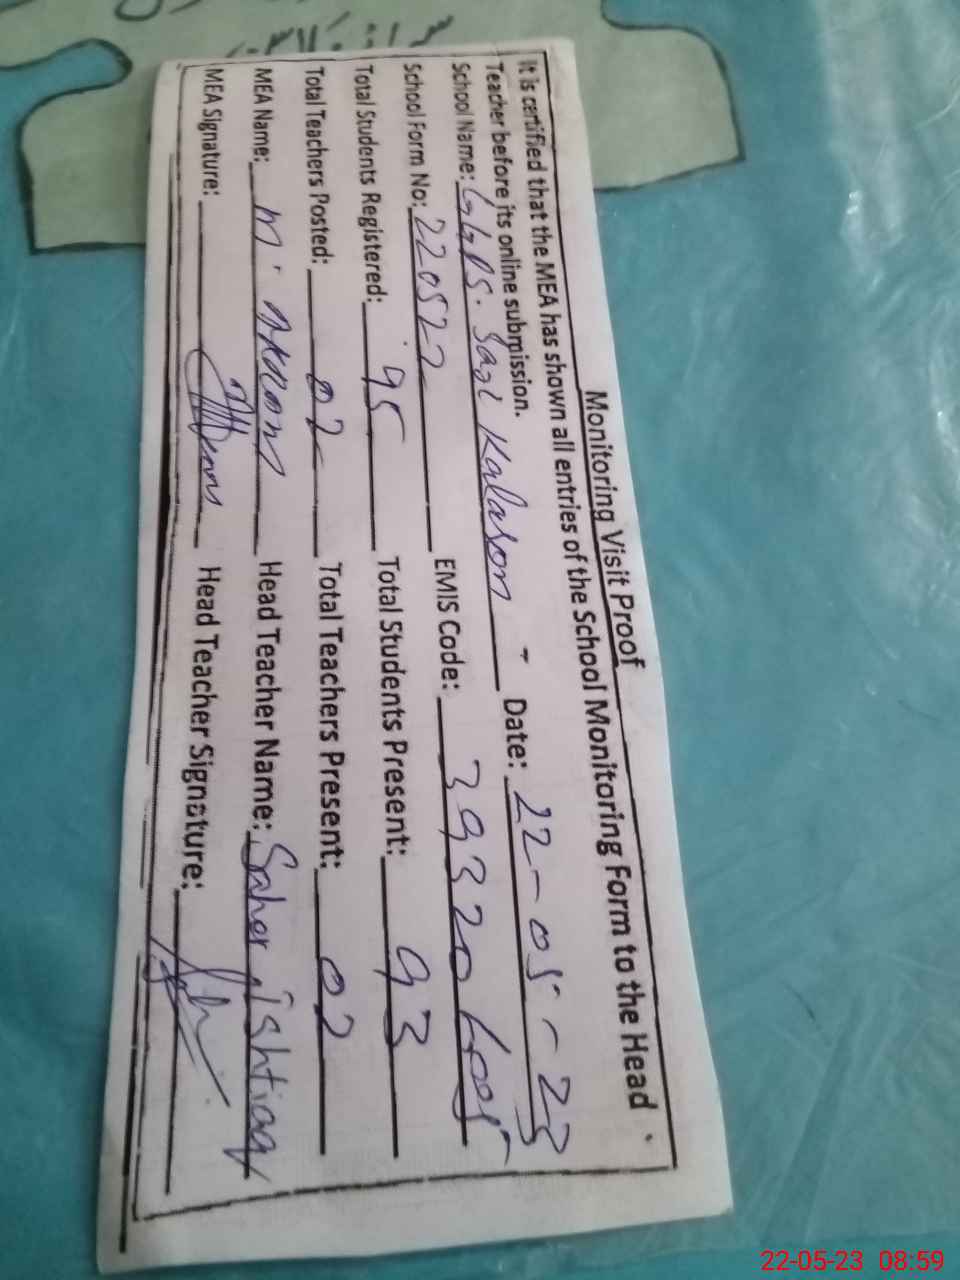 Monitoring Visit Proof
It is certified that the MEA has shown all entries of the School Monitoring Form to the Head
Teacher before its online submission.
School Name: GGPS. Sagi Kalason - Date: 22-05-23
School Form No: 220522 EMIS Code: 39320
Total Students Registered: 95 Total Students Present: 93
Total Teachers Posted: 02 Total Teachers Present: 02
MEA Name: M. Akram Head Teacher Name: Saher Ishtiaq
MEA Signature: Head Teacher Signature:
22-05-23 08:59